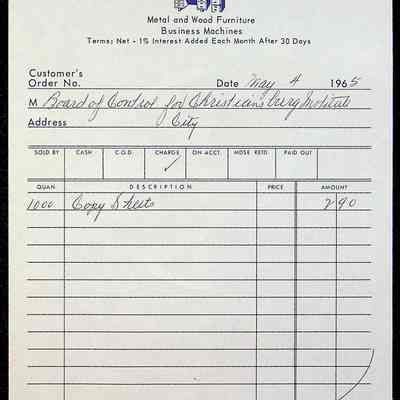 Metal and Wood Furniture
Business Machines
Terms; Net - 1% Interest Added Each Month After 30 Days
Customer's
Order No. Date May 4 1965
M Board of Control for Christiansburg Institute
Address City
SOLD BY CASH C.O.D. CHARGE ON ACCT. MDSE RETD. PAID OUT
✓
QUAN. DESCRIPTION PRICE AMOUNT
1000 Copy Sheets 2 90